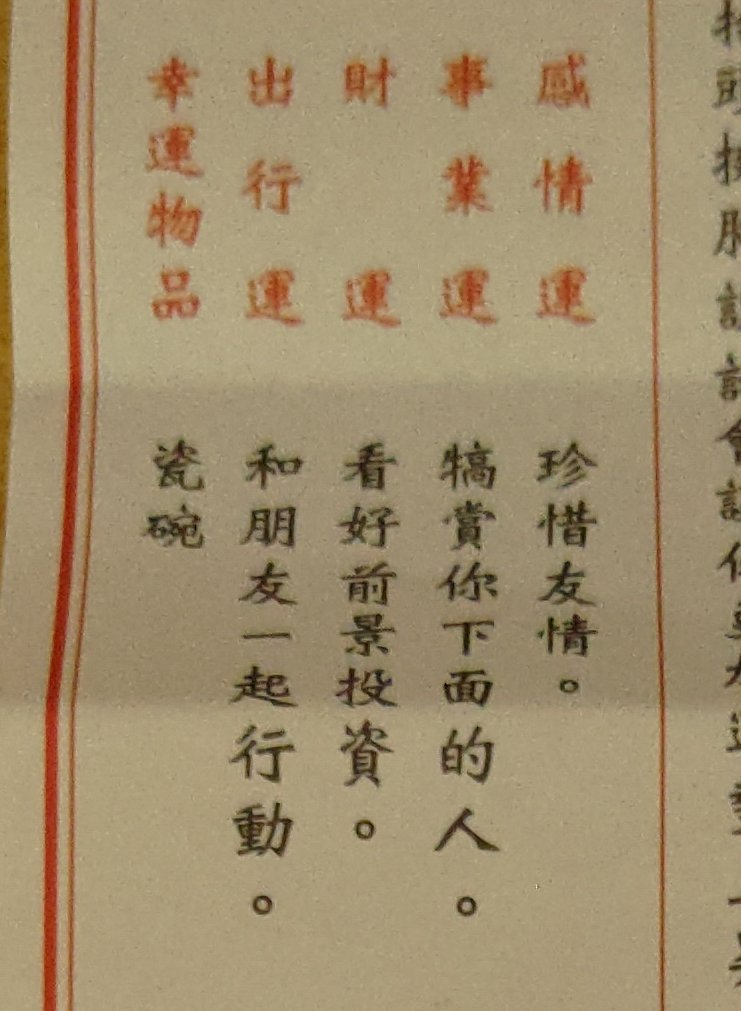 感情運 珍惜友情。
事業運 犒賞你下面的人。
財運 看好前景投資。
出行運 和朋友一起行動。
幸運物品 瓷碗